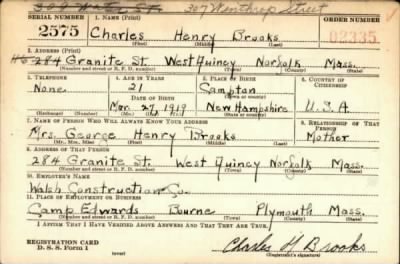 309 Water St. 307 Winthrop Street
SERIAL NUMBER 1. NAME (Print) ORDER NUMBER
2575 Charles Henry Brooks 02335
(First) (Middle) (Last)
2. ADDRESS (Print)
284 Granite St. West Quincy Norfolk Mass.
(Number and street or R. F. D. number) (Town) (County) (State)
3. TELEPHONE 4. AGE IN YEARS 5. PLACE OF BIRTH 6. COUNTRY OF CITIZENSHIP
None 21 Campton
DATE OF BIRTH (Town or county)
Mar. 27, 1919 New Hampshire U.S.A
(Exchange) (Number) (Mo.) (Day) (Yr.) (State or country)
7. NAME OF PERSON WHO WILL ALWAYS KNOW YOUR ADDRESS 8. RELATIONSHIP OF THAT PERSON
Mrs. George Henry Brooks Mother
(Mr., Mrs., Miss) (First) (Middle) (Last)
9. ADDRESS OF THAT PERSON
284 Granite St. West Quincy Norfolk Mass.
(Number and street or R. F. D. number) (Town) (County) (State)
10. EMPLOYER'S NAME
Walsh Construction Co.
11. PLACE OF EMPLOYMENT OR BUSINESS
Camp Edwards Bourne Plymouth Mass.
(Number and street or R. F. D. number) (Town) (County) (State)
I AFFIRM THAT I HAVE VERIFIED ABOVE ANSWERS AND THAT THEY ARE TRUE.
REGISTRATION CARD
D. S. S. Form 1 (over) Charles H Brooks
(Registrant's signature)